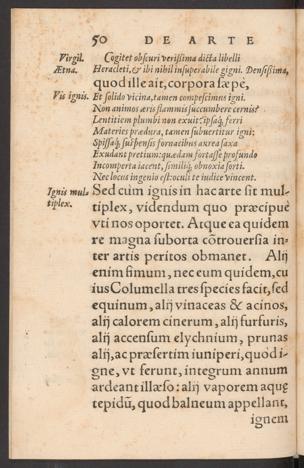 50 DE ARTE
Virgil. Cogitet obscuri verissima dicta libelli
Ætna. Heracleti, & ibi nihil insuperabile gigni. Densissima,
quod ille ait, corpora sæpè,
Vis ignis. Et solido vicina, tamen compescimus igni.
Non animos æris flammis succumbere cernis?
Lentitiem plumbi non exuit? ipsaq; ferri
Materies prædura, tamen subuertitur igni;
Spissaq; suspensis fornacibus aurea saxa
Exudant pretium: quædam fortasse profundo
Incomperta iacent, similiq; obnoxia sorti.
Nec locus ingenio est: oculi te iudice vincent.
Ignis mul- Sed cùm ignis in hac arte sit mul-
tiplex. tiplex, videndum quo præcipuè
vti nos oportet. Atque ea quidem
re magna suborta cōtrouersia in-
ter artis peritos obmanet. Alij
enim fimum, nec eum quidem, cu
ius Columella tres species facit, sed
equinum, alij vinaceas & acinos,
alij calorem cinerum, alij furfuris,
alij accensum elychnium, prunas
alij, ac præsertim iuniperi, quòd i-
gne, vt ferunt, integrum annum
ardeant illæso: alij vaporem aquę
tepidū, quod balneum appellant,
ignem